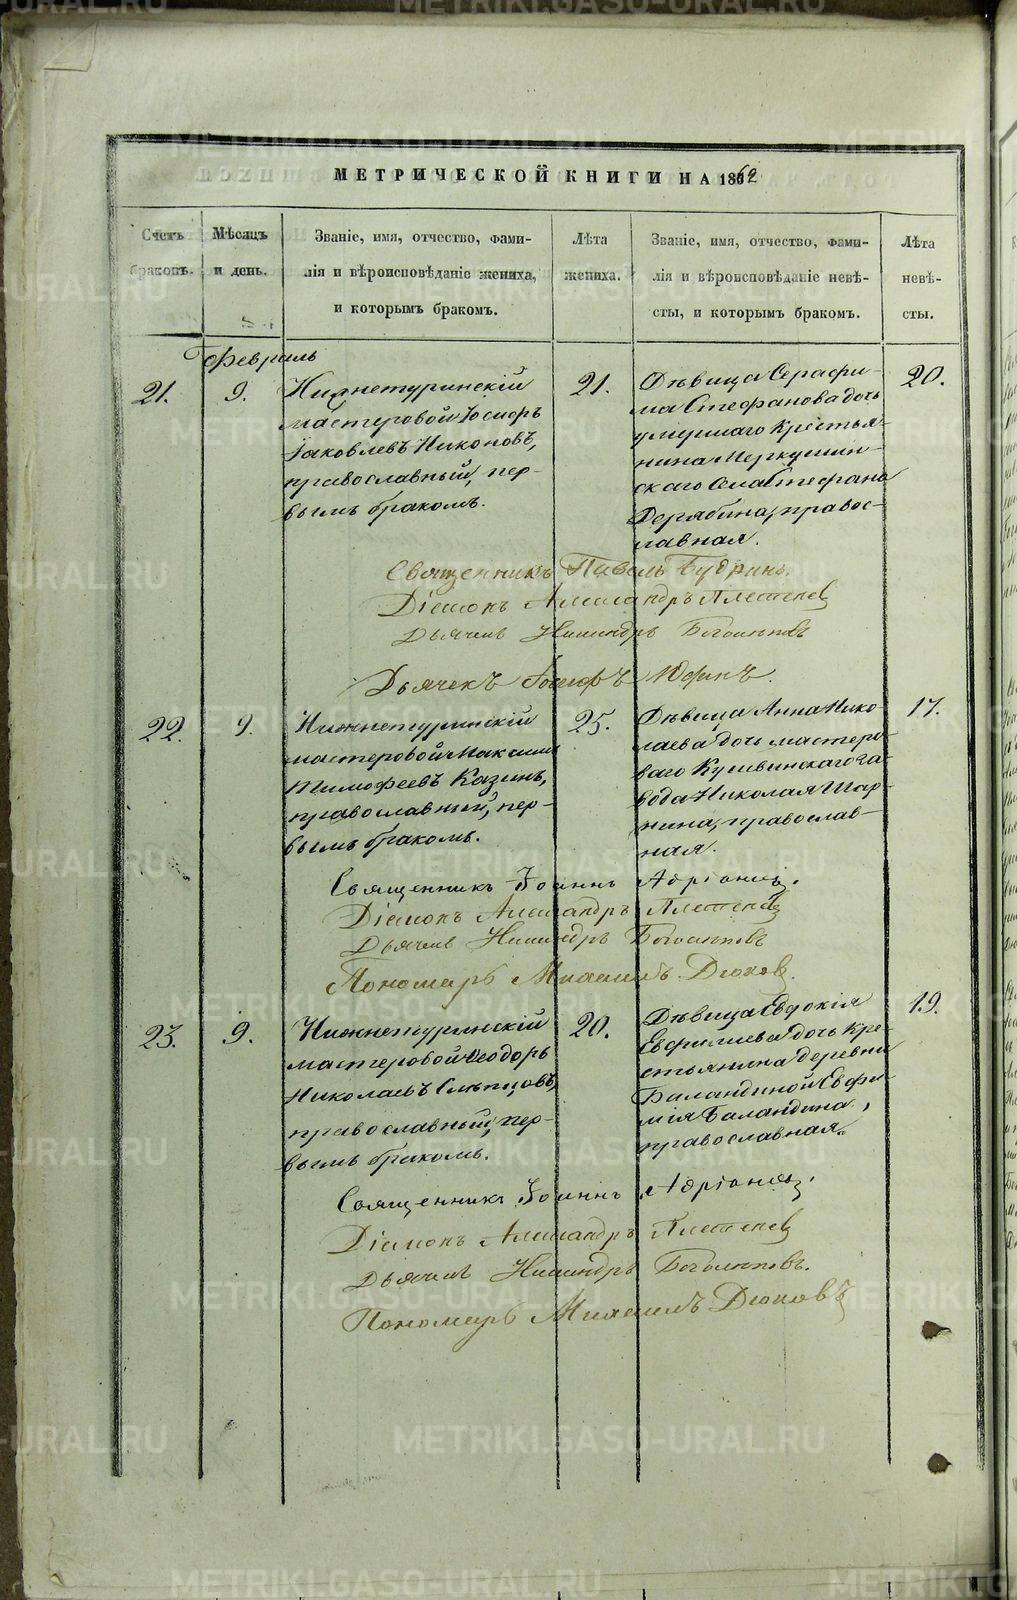 МЕТРИЧЕСКОЙ КНИГИ НА 1862
Счетъ браковъ.
Мѣсяцъ и день.
Званіе, имя, отчество, фами-
лія и вѣроисповѣданіе жениха,
и которымъ бракомъ.
Лѣта жениха.
Званіе, имя, отчество, фами-
лія и вѣроисповѣданіе невѣ-
сты, и которымъ бракомъ.
Лѣта невѣ-
сты.
Февраль
21.
9.
Нижнетуринскій
мастеровой Іосифъ
Іаковлевъ Никоновъ,
православный, пер-
вымъ бракомъ.
21.
Дѣвица Серафи-
ма Стефанова дочь
умершаго крестья-
нина Меркушин-
скаго села Стефана
Дерябина, правос-
лавная.
20.
Священникъ Павелъ Будринъ.
Діаконъ Александръ Плетенев
Дьячекъ Никандръ
Дьячекъ Іосифъ Юдинъ.
22.
9.
Нижнетуринскій
мастеровой Максим
Тимофеевъ Казинъ,
православный, пер-
вымъ бракомъ.
25.
Дѣвица Анна Нико-
лаева дочь мастеро-
ваго Кушвинскаго за-
вода Николая Шар-
нина, православ-
ная.
17.
Священникъ Іоаннъ
Діаконъ Александръ Плетенев
Дьячекъ Никандръ
Пономарь Михаилъ Дюков.
23.
9.
Нижнетуринскій
мастеровой Ѳеодоръ
Николаевъ Слѣпцовъ,
православный, пер-
вымъ бракомъ.
20.
Дѣвица Евдокія
Евфиміева дочь кре-
стьянина деревни
Баландиной Евфи-
мія Баландина,
православная.
19.
Священникъ Іоаннъ
Діаконъ Александръ Плетенев
Дьячекъ Никандръ
Пономарь Михаилъ Дюковъ
METRIKI.GASO-URAL.RU